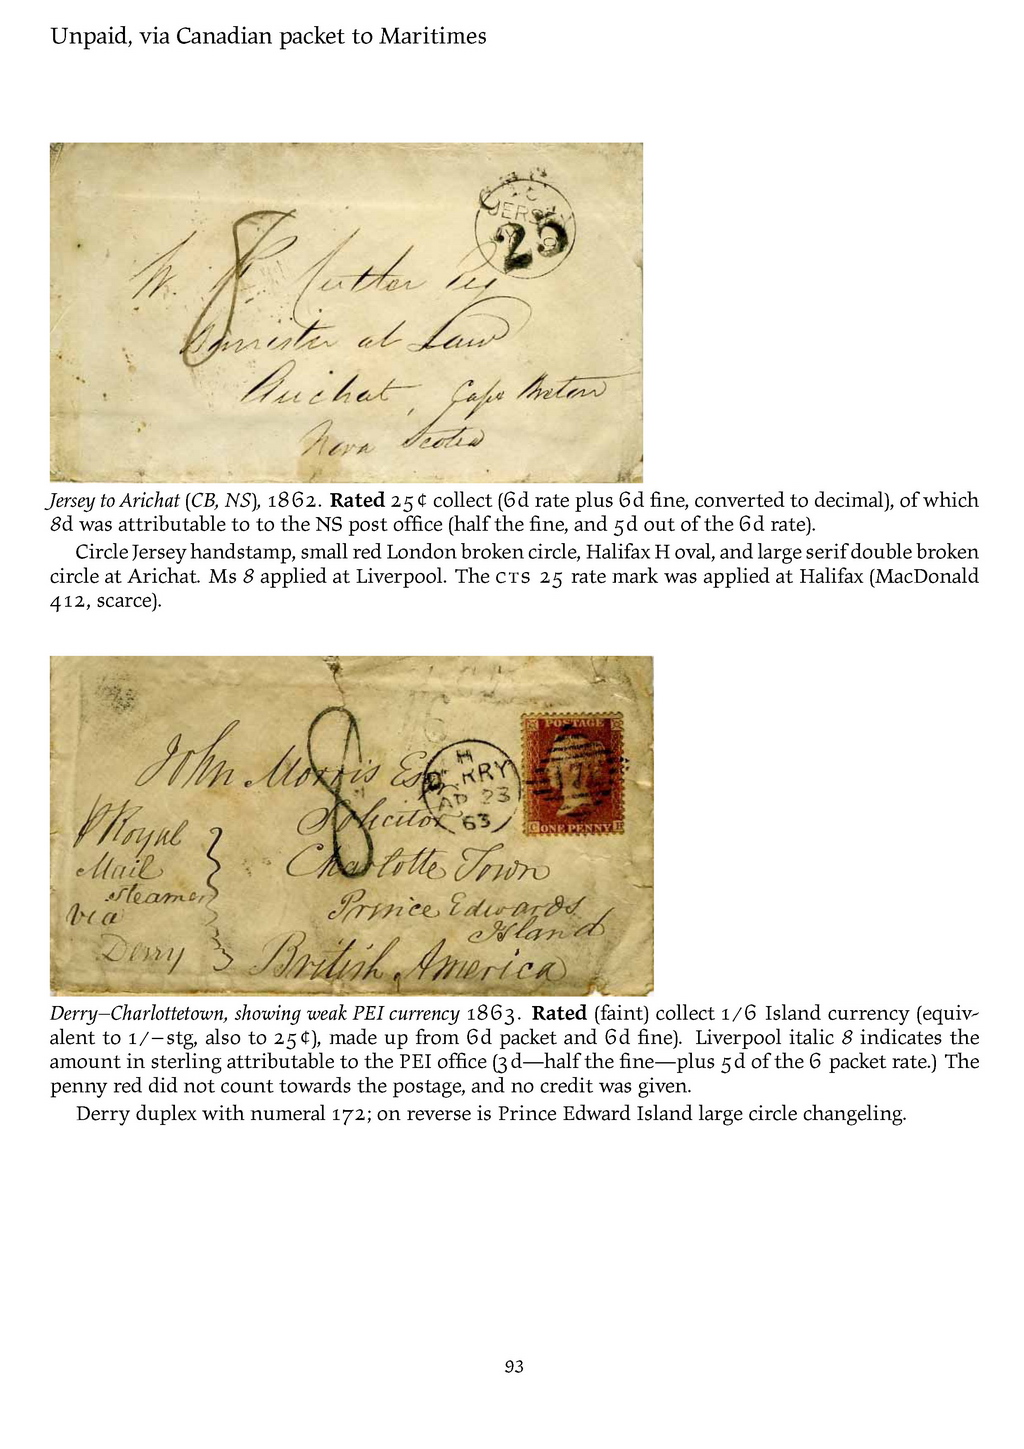 Unpaid, via Canadian packet to Maritimes
JERSEY
25
8
Barrister at Law
Arichat, Cape Breton
Nova Scotia
Jersey to Arichat (CB, NS), 1862. Rated 25¢ collect (6d rate plus 6d fine, converted to decimal), of which
8d was attributable to to the NS post office (half the fine, and 5d out of the 6d rate).
Circle Jersey handstamp, small red London broken circle, Halifax H oval, and large serif double broken
circle at Arichat. Ms 8 applied at Liverpool. The CTS 25 rate mark was applied at Halifax (MacDonald
412, scarce).
8
POSTAGE
H
DERRY
AP 23
63
172
C ONE PENNY E
John Morris Esq
Solicitor
Royal
Mail
Steamer
via
Derry
Charlotte Town
Prince Edwards
Island
British America
Derry–Charlottetown, showing weak PEI currency 1863. Rated (faint) collect 1/6 Island currency (equiv-
alent to 1/–stg, also to 25¢), made up from 6d packet and 6d fine). Liverpool italic 8 indicates the
amount in sterling attributable to the PEI office (3d—half the fine—plus 5d of the 6 packet rate.) The
penny red did not count towards the postage, and no credit was given.
Derry duplex with numeral 172; on reverse is Prince Edward Island large circle changeling.
93